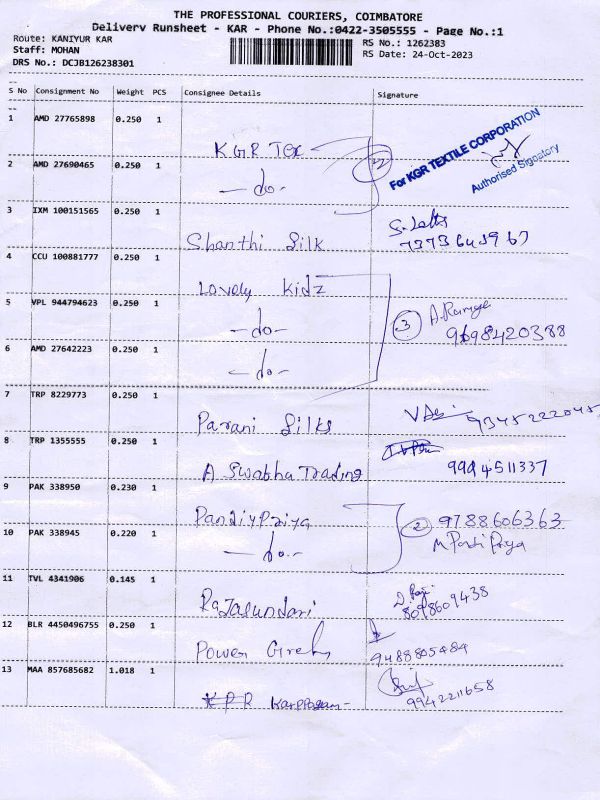 THE PROFESSIONAL COURIERS, COIMBATORE
Delivery Runsheet - KAR - Phone No.:0422-3505555 - Page No.:1
Route: KANIYUR KAR
Staff: MOHAN
DRS No.: DCJB126238301
RS No.: 1262383
RS Date: 24-Oct-2023
S No Consignment No Weight PCS Consignee Details Signature
1 AMD 27765898 0.250 1
KGR Tex
For KGR TEXTILE CORPORATION
Authorised Signatory
2 AMD 27690465 0.250 1
-do-
2
3 IXM 100151565 0.250 1
Shanthi Silk
7373643967
4 CCU 100881777 0.250 1
Lovely Kidz
5 VPL 944794623 0.250 1
-do-
3
A. Ramya
9698420388
6 AMD 27642223 0.250 1
-do-
7 TRP 8229773 0.250 1
Parani Silks
9345222045
8 TRP 1355555 0.250 1
A Swabha Trading
9994511337
9 PAK 338950 0.230 1
Pandiypriya
2
9788606363
10 PAK 338945 0.220 1
-do-
11 TVL 4341906 0.145 1
Rajasundari
8098609438
12 BLR 4450496755 0.250 1
Power
9488805484
13 MAA 857685682 1.018 1
KPR Karppagam
9942211658